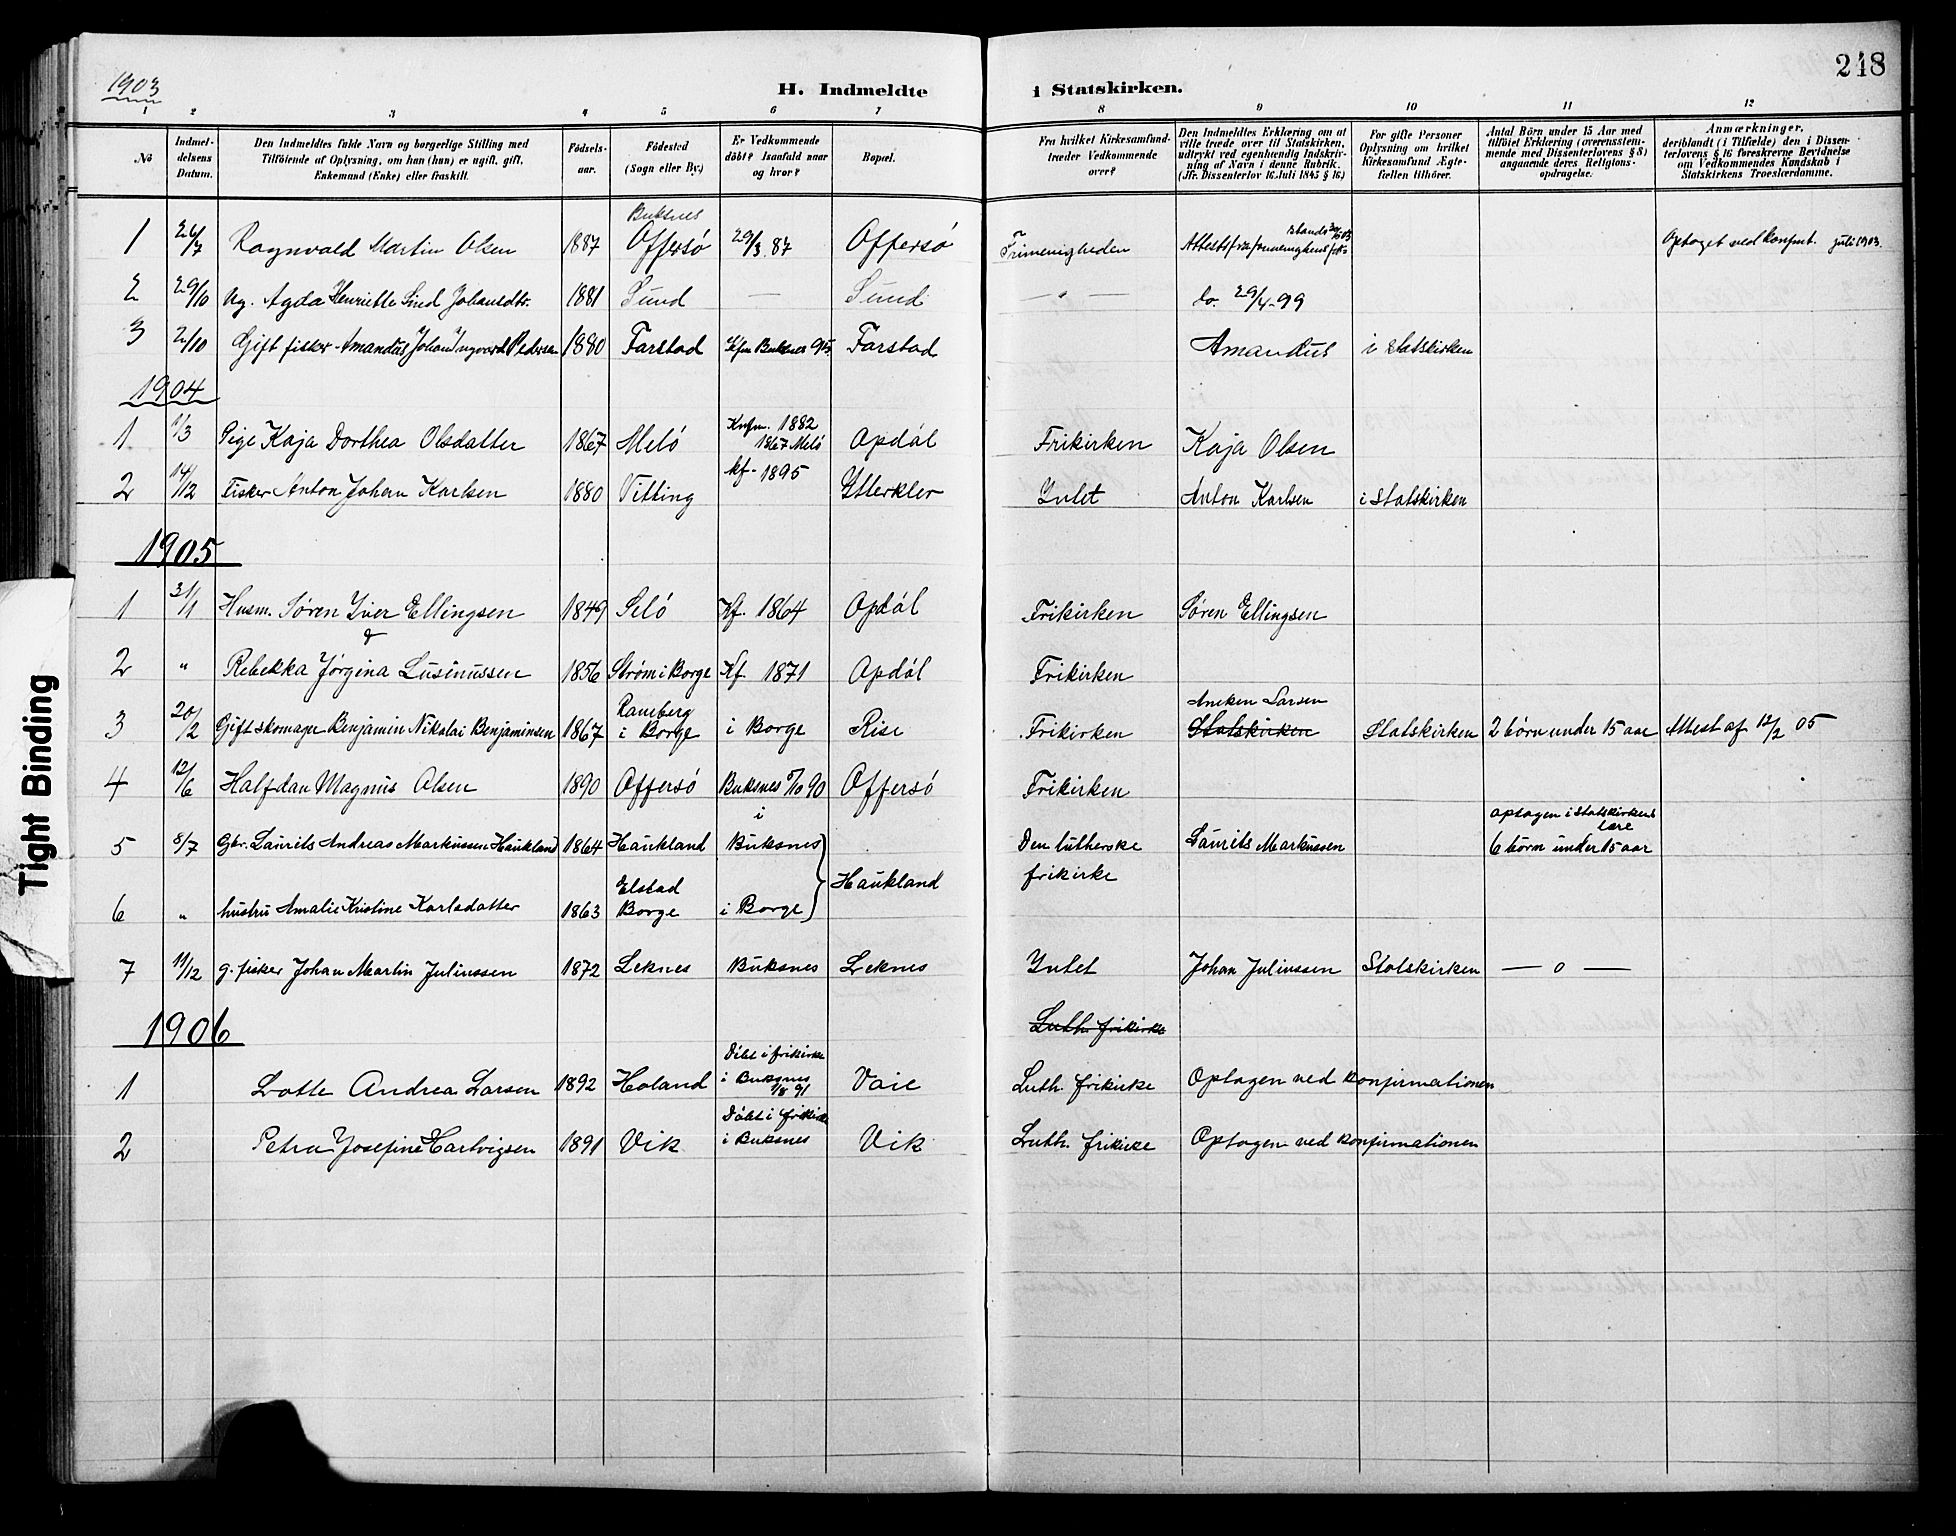 1903
H. Indmeldte i Statskirken.
248
1 2 3 4 5 6 7 8 9 10 11 12
No
Indmel-
delsens
Datum.
Den Indmeldtes fulde Navn og borgerlige Stilling med
Tilföiende af Oplysning, om han (hun) er ugift, gift,
Enkemand (Enke) eller fraskilt.
Födsels-
aar.
Födested
(Sogn eller By.)
Er Vedkommende
döbt? Isaafald naar
og hvor?
Bopæl.
Fra hvilket Kirkesamfund
træder Vedkommende
over?
Den Indmeldtes Erklæring om at
ville træde over til Statskirken,
udtrykt ved egenhændig Indskriv-
ning af Navn i denne Rubrik.
(Jfr. Dissenterlov 16. Juli 1845 § 16)
For gifte Personer
Oplysning om hvilket
Kirkesamfund Ægte-
fællen tilhörer.
Antal Börn under 15 Aar med
tilföiet Erklæring (overensstem-
mende med Dissenterlovens § 8)
angaaende deres Religions-
opdragelse.
Anmærkninger,
deriblandt (i Tilfælde) den i Dissen-
terlovens § 16 foreskrevne Bevidnelse
om Vedkommendes Kundskab i
Statskirkens Troeslærdomme.
1 26/7 Ragnvald Martin Olsen 1887 Buksnes Offersö 29/3 87 Offersö Frimenigheden Optaget ved Konfmt. juli 1903.
2 29/10 Ug. Agda Henriette Sind Johansdtr. 1881 Sund — Sund — " — do. 29/4-99
3 2/10 Gift fisker Amandus Johan Ingvard Pedersen 1880 Farstad Kfm Buksnes 95 Farstad Amandus i Statskirken
1904
1 1/3 Pige Kaja Dorthea Olsdatter 1867 Melö Knfm. 1882 1867 Melö Opdöl Frikirken Kaja Olsen
2 14/12 Fisker Anton Johan Karlsen 1880 Vitting kf. 1895 Ytterkler Intet Anton Karlsen i Statskirken
1905
1 31/1 Husm. Søren Iver Ellingsen 1849 Selö Kf. 1864 Opdöl Frikirken Søren Ellingsen
&
2 " Rebekka Jörgina Lusinussen 1856 Ström i Borge Kf. 1871 Opdöl Frikirken
3 20/2 Gift skomager Benjamin Nikolai Benjaminsen 1867 Ramberg i Borge i Borge Rise Frikirken Aneken Larsen Statskirken Statskirken 2 börn under 15 aar Attest af 12/2 05
4 12/6 Halfdan Magnus Olsen 1890 Offersö Buksnes 5/10 90 Offersö Frikirken
5 8/7 Gbr. Laurits Andreas Markussen Haukland 1864 Haukland i Buksnes Haukland Den lutherske frikirke Laurits Markussen optagen i Statskirkens lære 6 börn under 15 aar
6 " hustru Amalie Kristine Karlsdatter 1863 Elstad Borge i Borge
7 11/12 g. fisker Johan Martin Juliussen 1872 Leknes Buksnes Leknes Intet Johan Juliussen Statskirken — o —
1906
Luth. frikirke
1 Lotte Andrea Larsen 1892 Holand Döbt i frikirke i Buksnes 1/8 91 Vaie Luth. frikirke Optagen ved konfirmationen
2 Petra Josefine Hartvigsen 1891 Vik Döbt i frikirke i Buksnes Vik Luth. frikirke Optagen ved konfirmationen
Tight Binding